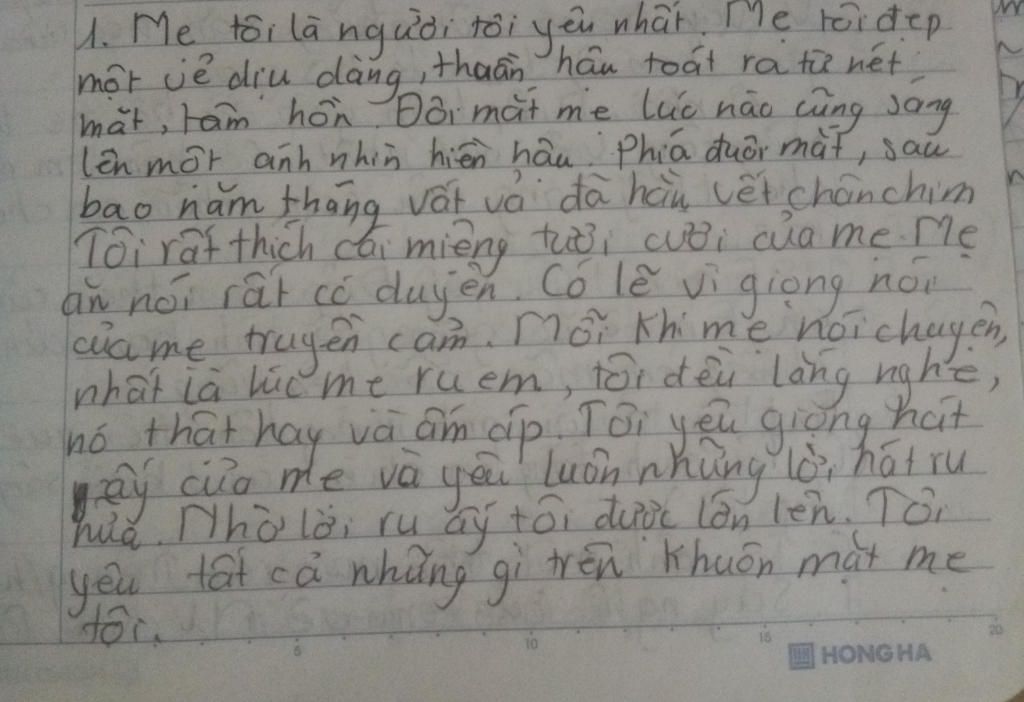 1. Mẹ tôi là người tôi yêu nhất. Mẹ tôi đẹp
một vẻ dịu dàng, thuần hậu toát ra từ nét
mặt, tâm hồn. Đôi mắt mẹ lúc nào cũng sáng
lên một ánh nhìn hiền hậu. Phía đuôi mắt, sau
bao năm tháng vất vả đã hằn vết chân chim
Tôi rất thích cái miệng tươi cười của mẹ. Mẹ
ăn nói rất có duyên. Có lẽ vì giọng nói
của mẹ truyền cảm. Mỗi khi mẹ nói chuyện,
nhất là lúc mẹ ru em, tôi đều lắng nghe,
nó thật hay và ấm áp. Tôi yêu giọng hát
ấy của mẹ và yêu luôn những lời hát ru
nữa. Nhờ lời ru ấy tôi được lớn lên. Tôi
yêu tất cả những gì trên khuôn mặt mẹ
tôi.
5 10 15 20
HONG HA